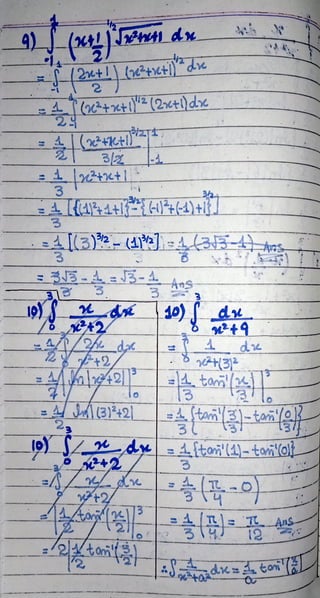 9) ∫₋₁¹ (x+1/2) √x²+x+1 dx
= ∫₋₁¹ (2x+1/2) (x²+x+1)^1/2 dx
= 1/2 ∫₋₁¹ (x²+x+1)^1/2 (2x+1) dx
= 1/2 |(x²+x+1)^3/2 / 3/2|₋₁¹
= 1/3 |x²+x+1|
= 1/3 [{(1)²+1+1}^3/2 - {(-1)²+(-1)+1}^3/2]
= 1/3 [(3)^3/2 - (1)^3/2] = 1/3 (3√3-1) Ans
= 3√3/3 - 1/3 = √3 - 1/3 Ans
10) ∫₀³ x/x²+2 dx
= 1/2 ∫₀³ 2x/x²+2 dx
= 1/2 |ln|x²+2||₀³
= 1/2 ln|(3)²+2|
10) ∫₀³ x/x²+2 dx
= ∫₀³ x/x²+2 dx
= |1/2 tan⁻¹(x/2)|₀³
= 2|1/2 tan⁻¹(3/2)
10) ∫₀³ dx/x²+9
= ∫₀³ 1/x²+(3)² dx
= |1/3 tan⁻¹(x/3)|₀³
= 1/3 {tan⁻¹(3/3) - tan⁻¹(0/3)}
= 1/3 {tan⁻¹(1) - tan⁻¹(0)}
= 1/3 (π/4 - 0)
= 1/3 (π/4) = π/12 Ans
∴ ∫ 1/x²+a² dx = 1/a tan⁻¹(x/a)